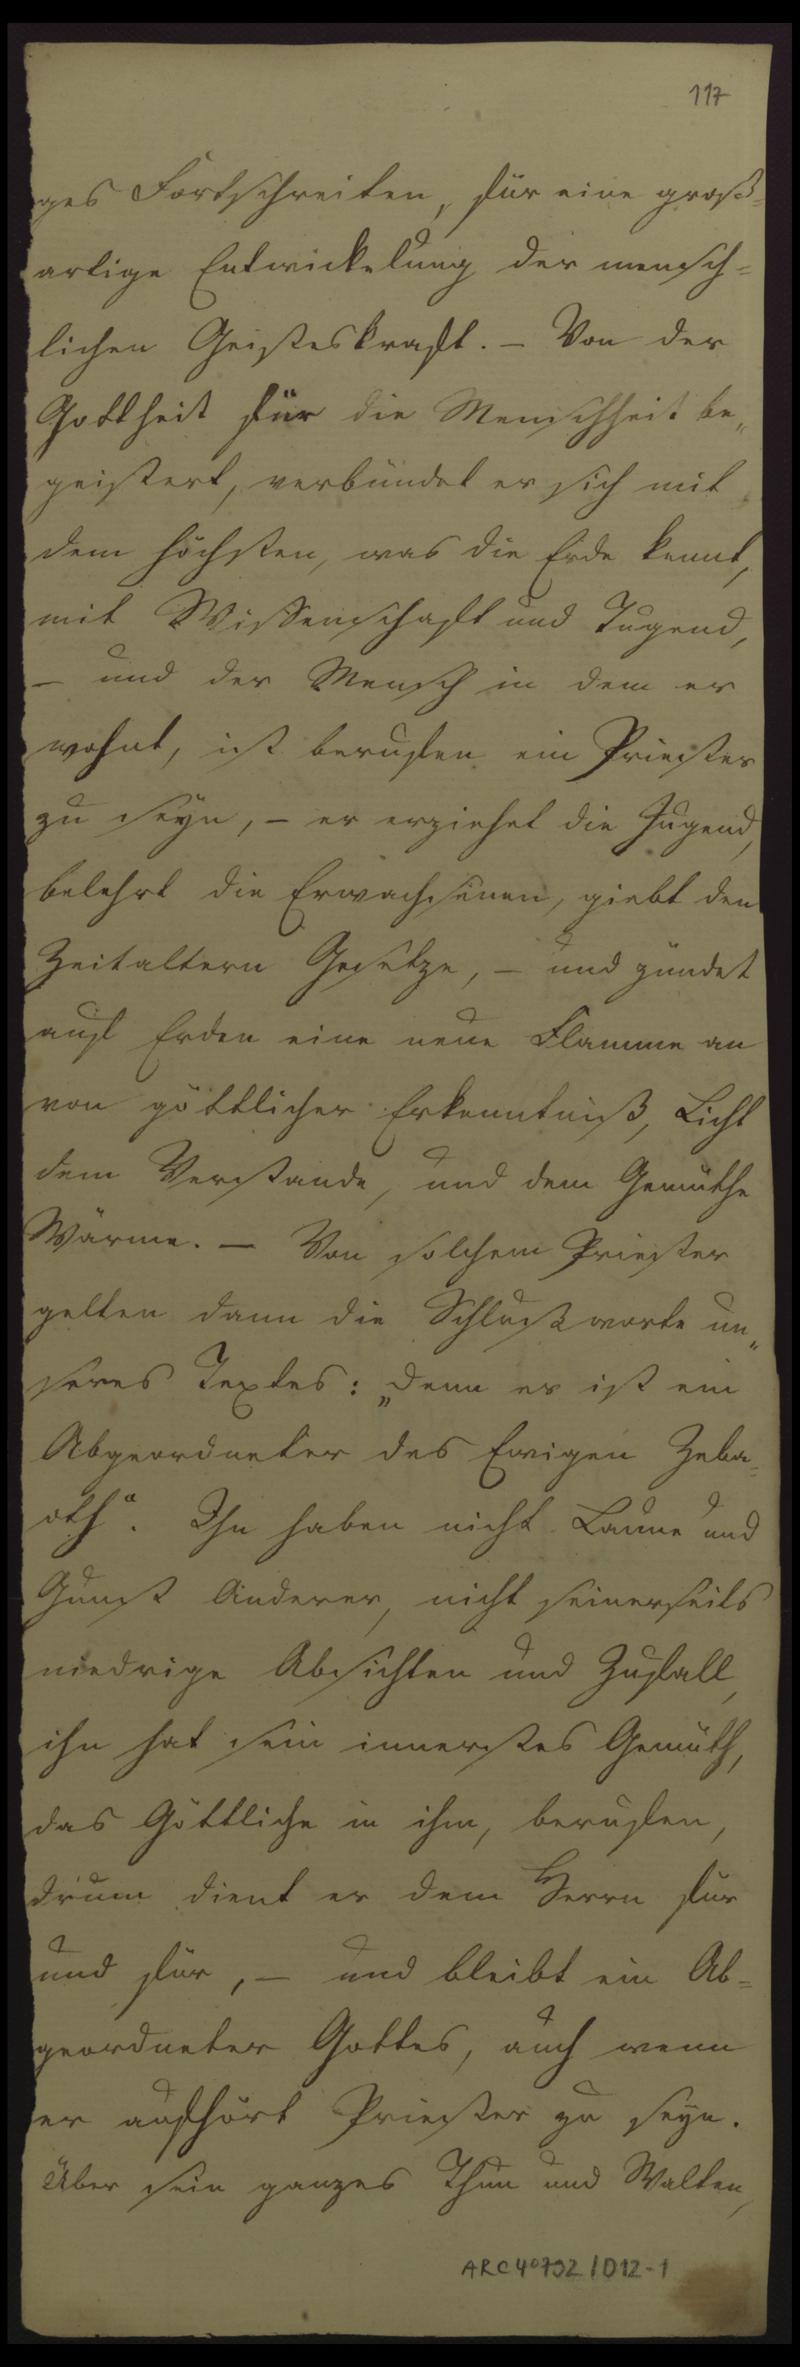 117
ges Fortschreiten, für eine groß-
artige Entwickelung der mensch-
lichen Geisteskraft. – Von der
Gottheit für die Menschheit be„
geistert, verbündet er sich mit
dem höchsten, was die Erde kennt,
mit Wissenschaft und Tugend,
– und der Mensch in dem er
wohnt, ist berufen ein Priester
zu seyn, – er erziehet die Jugend,
belehrt die Erwachsenen, giebt den
Zeitaltern Gesetze, – und zündet
auf Erden eine neue Flamme an
von göttlicher Erkenntniß, Licht
dem Verstande, und dem Gemüthe
Wärme. – Von solchem Priester
gelten dann die Schlußworte un„
seres Textes: „denn er ist ein
Abgeordneter des Ewigen Zeba-
oth“. Ihn haben nicht Laune und
Gunst Anderer, nicht seinerseits
niedrige Absichten und Zufall,
ihn hat sein innerstes Gemüth,
das Göttliche in ihm, berufen,
drum dient er dem Herrn für
und für, – und bleibt ein Ab-
geordneter Gottes, auch wenn
er aufhört Priester zu seyn.
Über sein ganzes Thun und Walten,
ARC 4° 792 / D12-1